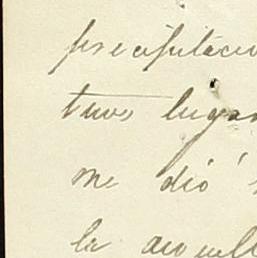 precipitacio
tuvo lugar
me dió
la aquell